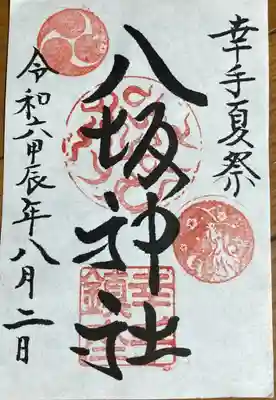 幸手夏祭
八坂神社
令和六甲辰年八月二日